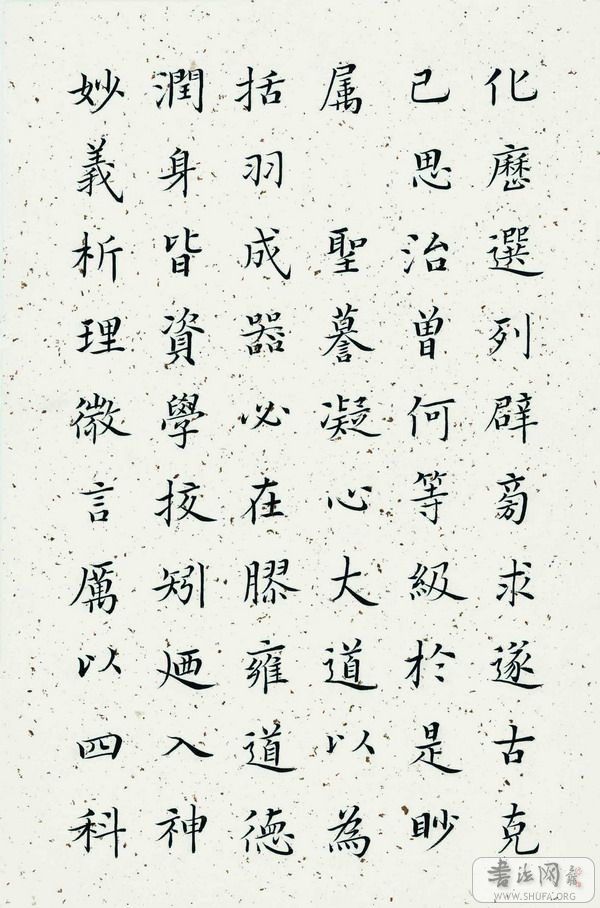 化歷選列辟旁求遂古克
己思治曾何等級於是眇
属 聖謩凝心大道以為
括羽成器必在膠雍道德
潤身皆資學挍矧迺入神
妙義析理微言厲以四科
書法网
WWW.SHUFA.ORG